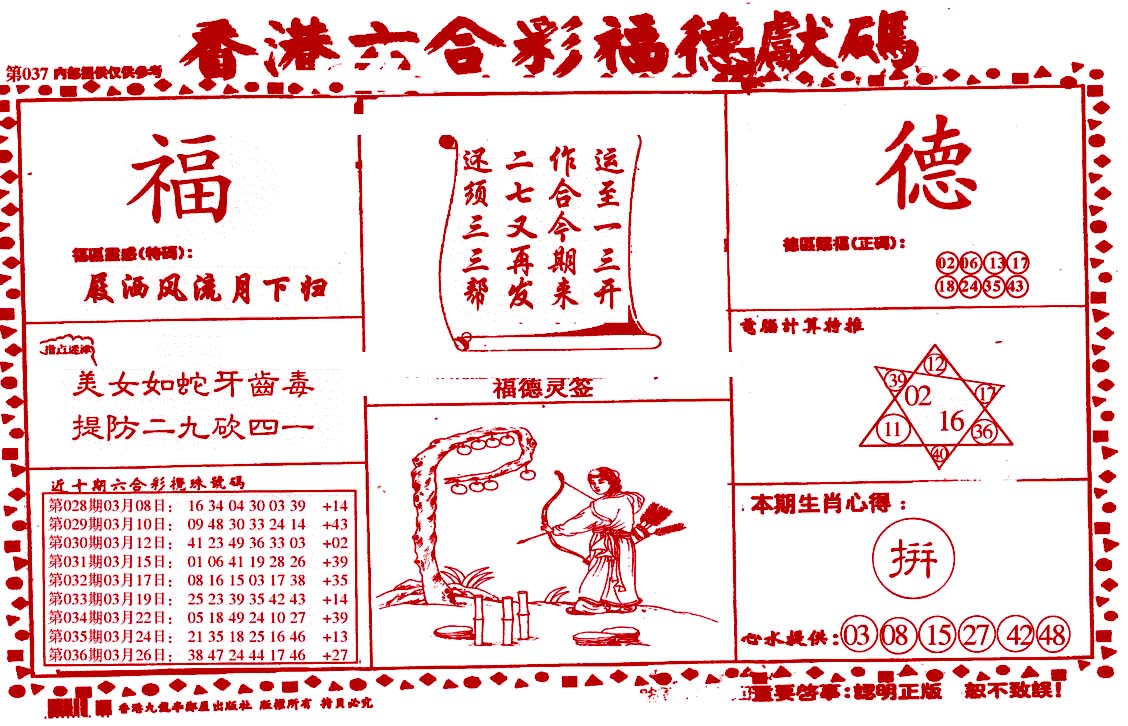 香港六合彩福德獻碼
第037 内部提供仅供参考
福
福區靈感(特碼):
屐洒风流月下归
指点迷津
美女如蛇牙齒毒
提防二九砍四一
近十期六合彩攪珠號碼
第028期03月08日: 16 34 04 30 03 39 +14
第029期03月10日: 09 48 30 33 24 14 +43
第030期03月12日: 41 23 49 36 33 03 +02
第031期03月15日: 01 06 41 19 28 26 +39
第032期03月17日: 08 16 15 03 17 38 +35
第033期03月19日: 25 23 39 35 42 43 +14
第034期03月22日: 05 18 49 24 10 27 +39
第035期03月24日: 21 35 18 25 16 46 +13
第036期03月26日: 38 47 24 44 17 46 +27
运至一三开
作合今期来
二七又再发
还须三三帮
福德灵签
德
德區賜福(正碼):
02 06 13 17
18 24 35 43
電腦計算特推
12
39 17
02
16
11 36
40
本期生肖心得:
拼
心水提供: 03 08 15 27 42 48
重要啓事:認明正版 恕不致誤!
香港九龍 出版社 版權所有